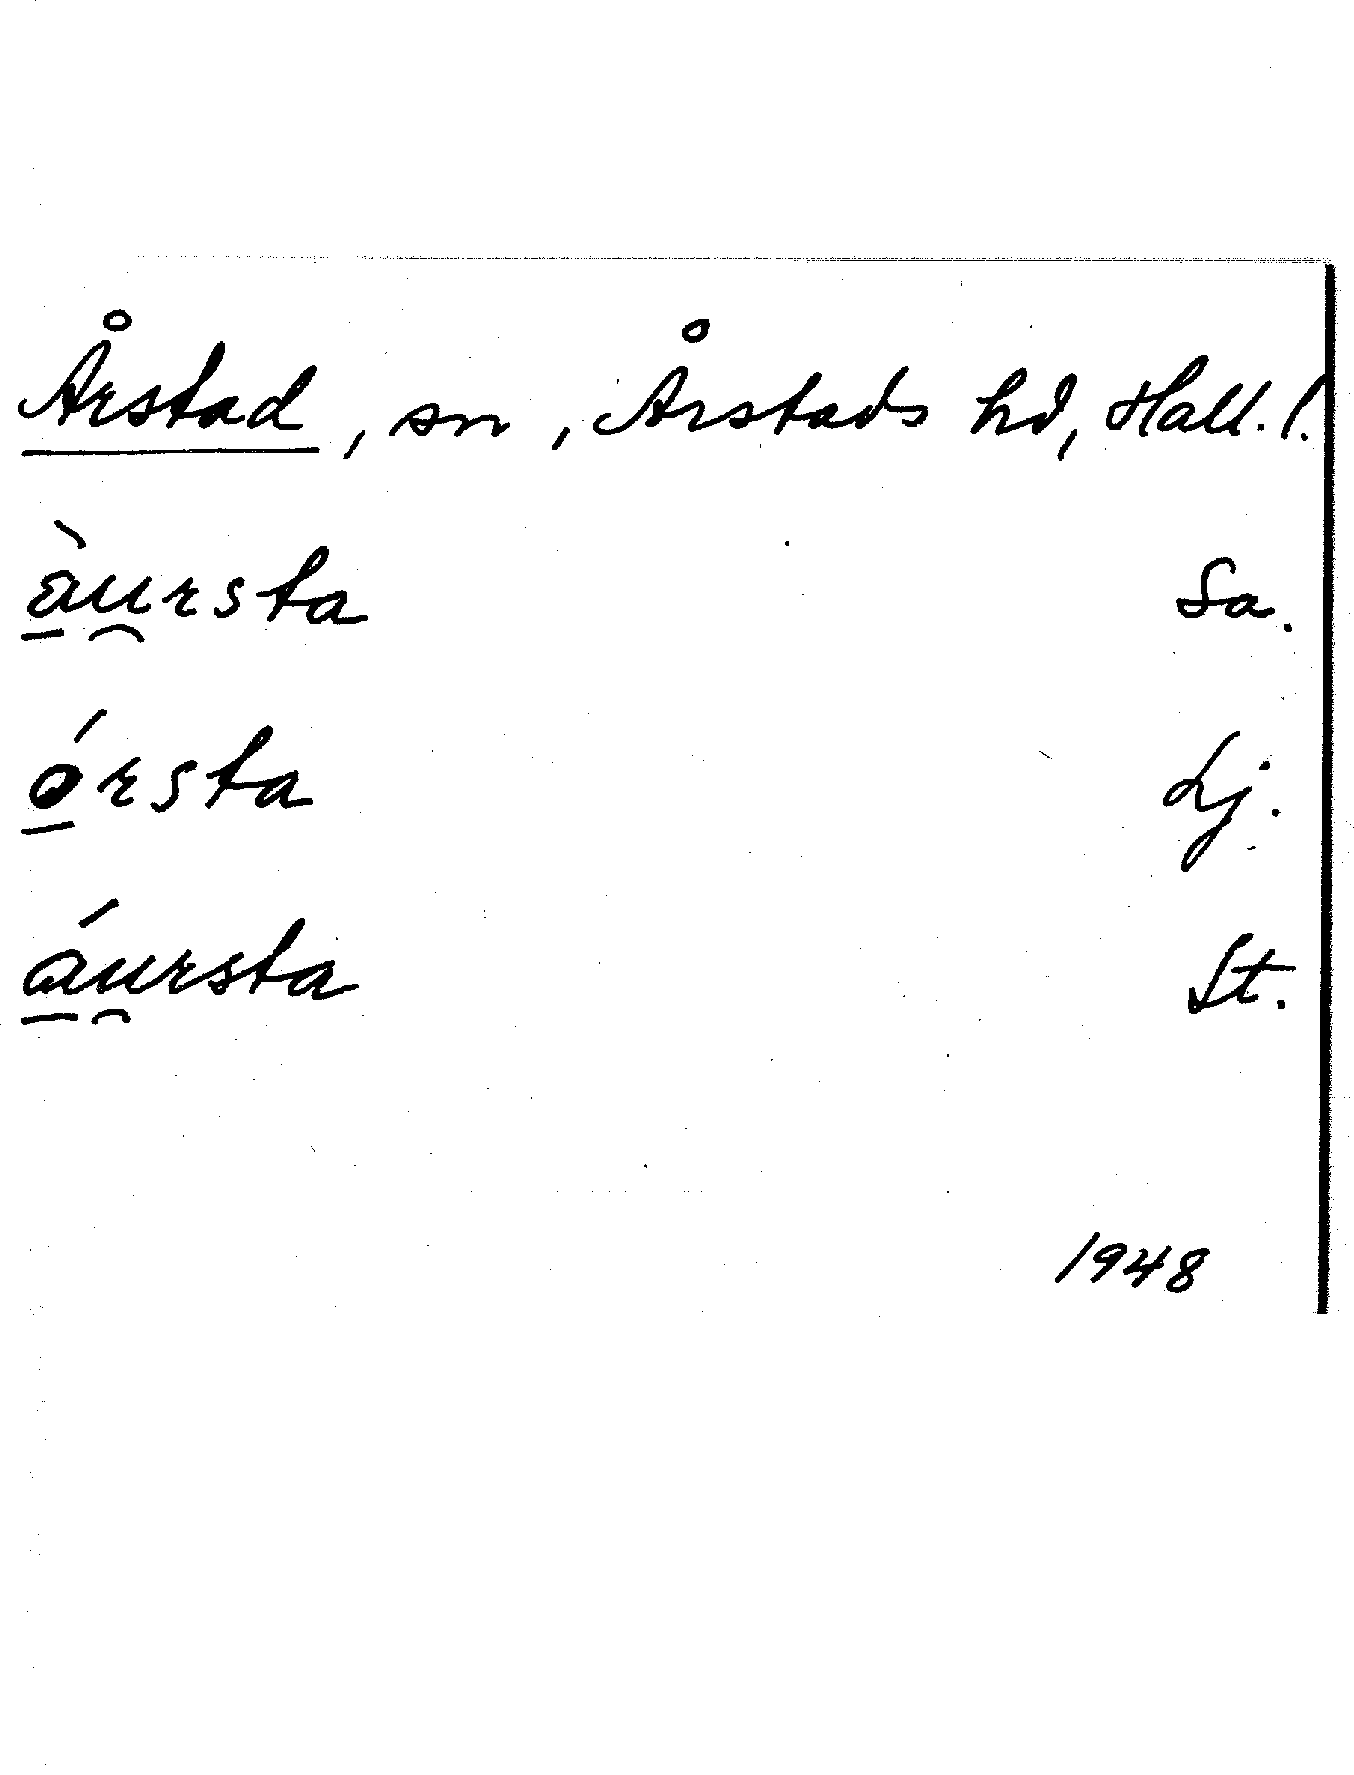 Årstad, sn, Årstads hd, Hall. l.
à̱u̯rsta Sa.
ó̱rsta Lj.
á̱u̯rsta St.
1948